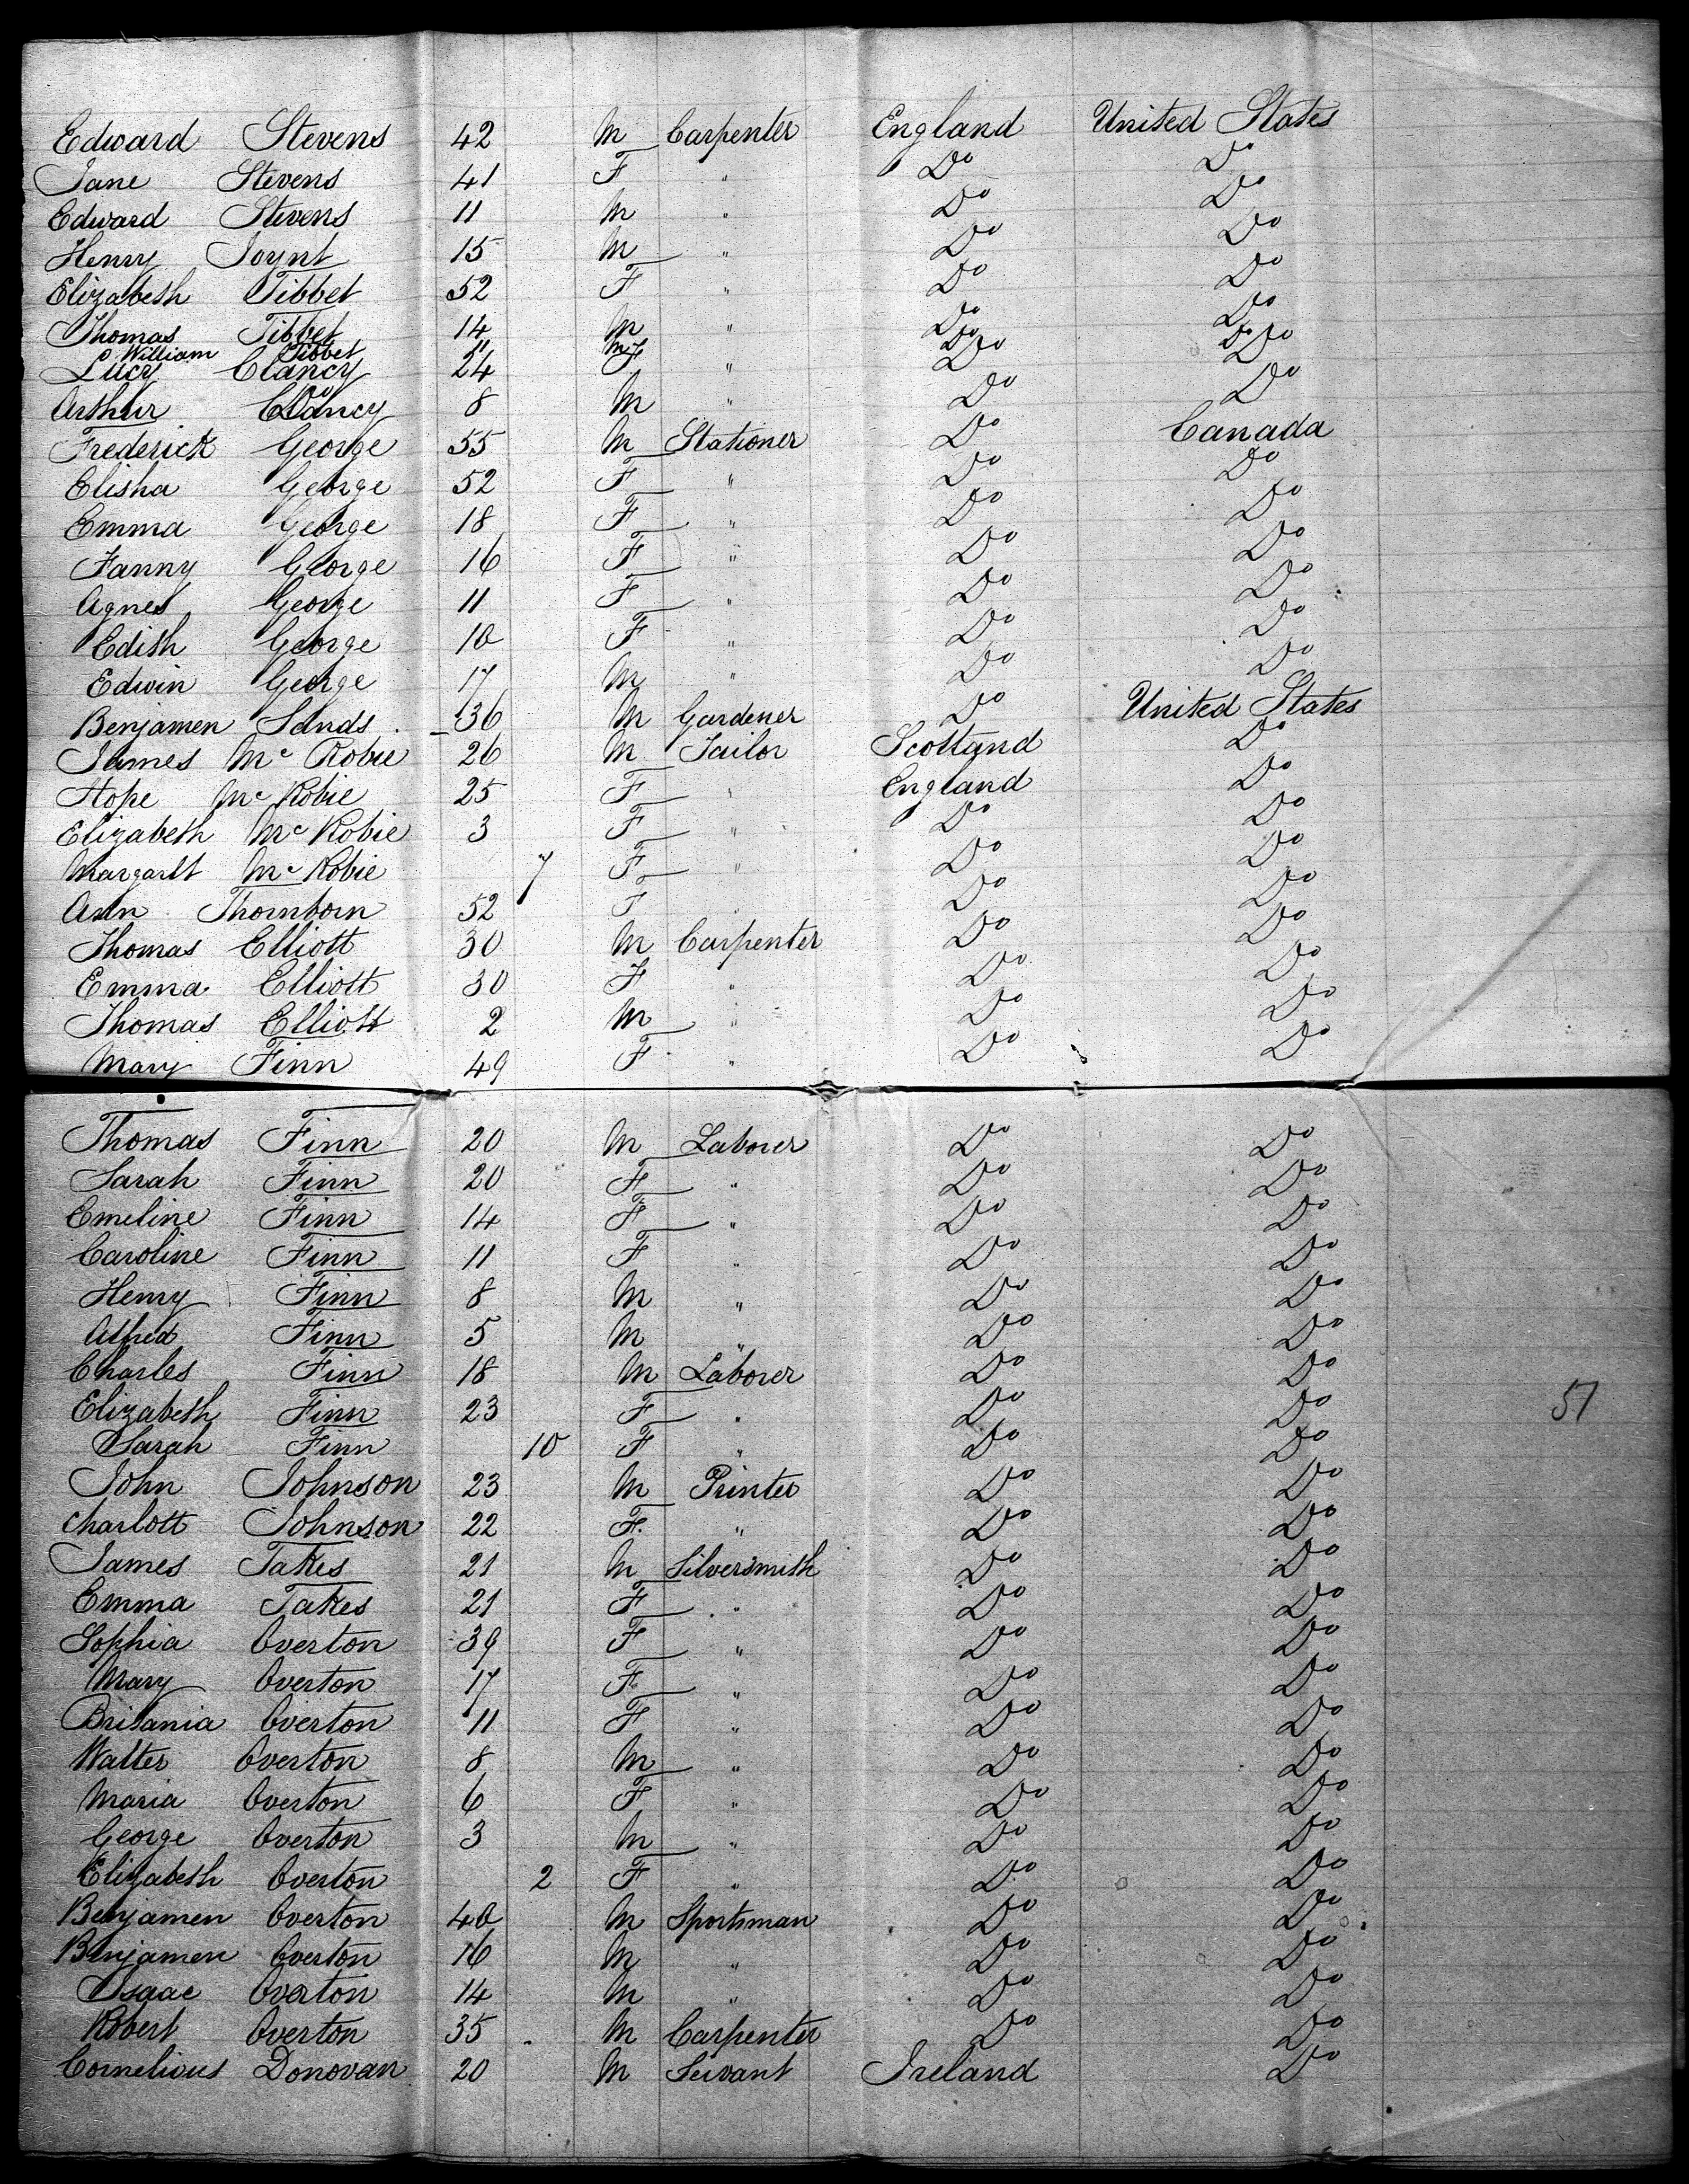 Edward Stevens 42 M Carpenter England United States
Jane Stevens 41 F " Do Do
Edward Stevens 11 M " Do Do
Henry Joynt 15 M " Do Do
Elizabeth Tibbet 52 F " Do Do
Thomas Tibbet 14 M " Do Do
William Tibbet 11 M Do Do
Lucy Clancy 24 F " Do Do
Arthur Do 8 M " Do Do
Frederick George 55 M Stationer Do Canada
Elisha George 52 F " Do Do
Emma George 18 F " Do Do
Fanny George 16 F " Do Do
Agnes George 11 F " Do Do
Edith George 10 F " Do Do
Edwin George 17 M " Do Do
Benjamen Sands 36 M Gardener Do United States
James Mc Robie 26 M Tailor Scotland Do
Hope Mc Robie 25 F " England Do
Elizabeth Mc Robie 3 F " Do Do
Margarett Mc Robie 7 F " Do Do
Ann Thornborn 52 F " Do Do
Thomas Elliott 30 M Carpenter Do Do
Emma Elliott 30 F " Do Do
Thomas Elliott 2 M " Do Do
Mary Finn 49 F " Do Do
Thomas Finn 20 M Laborer Do Do
Sarah Finn 20 F " Do Do
Emeline Finn 14 F " Do Do
Caroline Finn 11 F " Do Do
Henry Finn 8 M " Do Do
Alfred Finn 5 M " Do Do
Charles Finn 18 M Laborer Do Do
Elizabeth Finn 23 F " Do Do 57
Sarah Finn 10 F " Do Do
John Johnson 23 M Printer Do Do
Charlott Johnson 22 F " Do Do
James Takes 21 M Silversmith Do Do
Emma Takes 21 F " Do Do
Sophia Overton 39 F " Do Do
Mary Overton 17 F " Do Do
Britania Overton 11 F " Do Do
Walter Overton 8 M " Do Do
Maria Overton 6 F " Do Do
George Overton 3 M " Do Do
Elizabeth Overton 2 F " Do Do
Benjamen Overton 40 M Sportsman Do Do
Benjamen Overton 16 M " Do Do
Isaac Overton 14 M " Do Do
Robert Overton 35 M Carpenter Do Do
Cornelious Donovan 20 M Servant Ireland Do